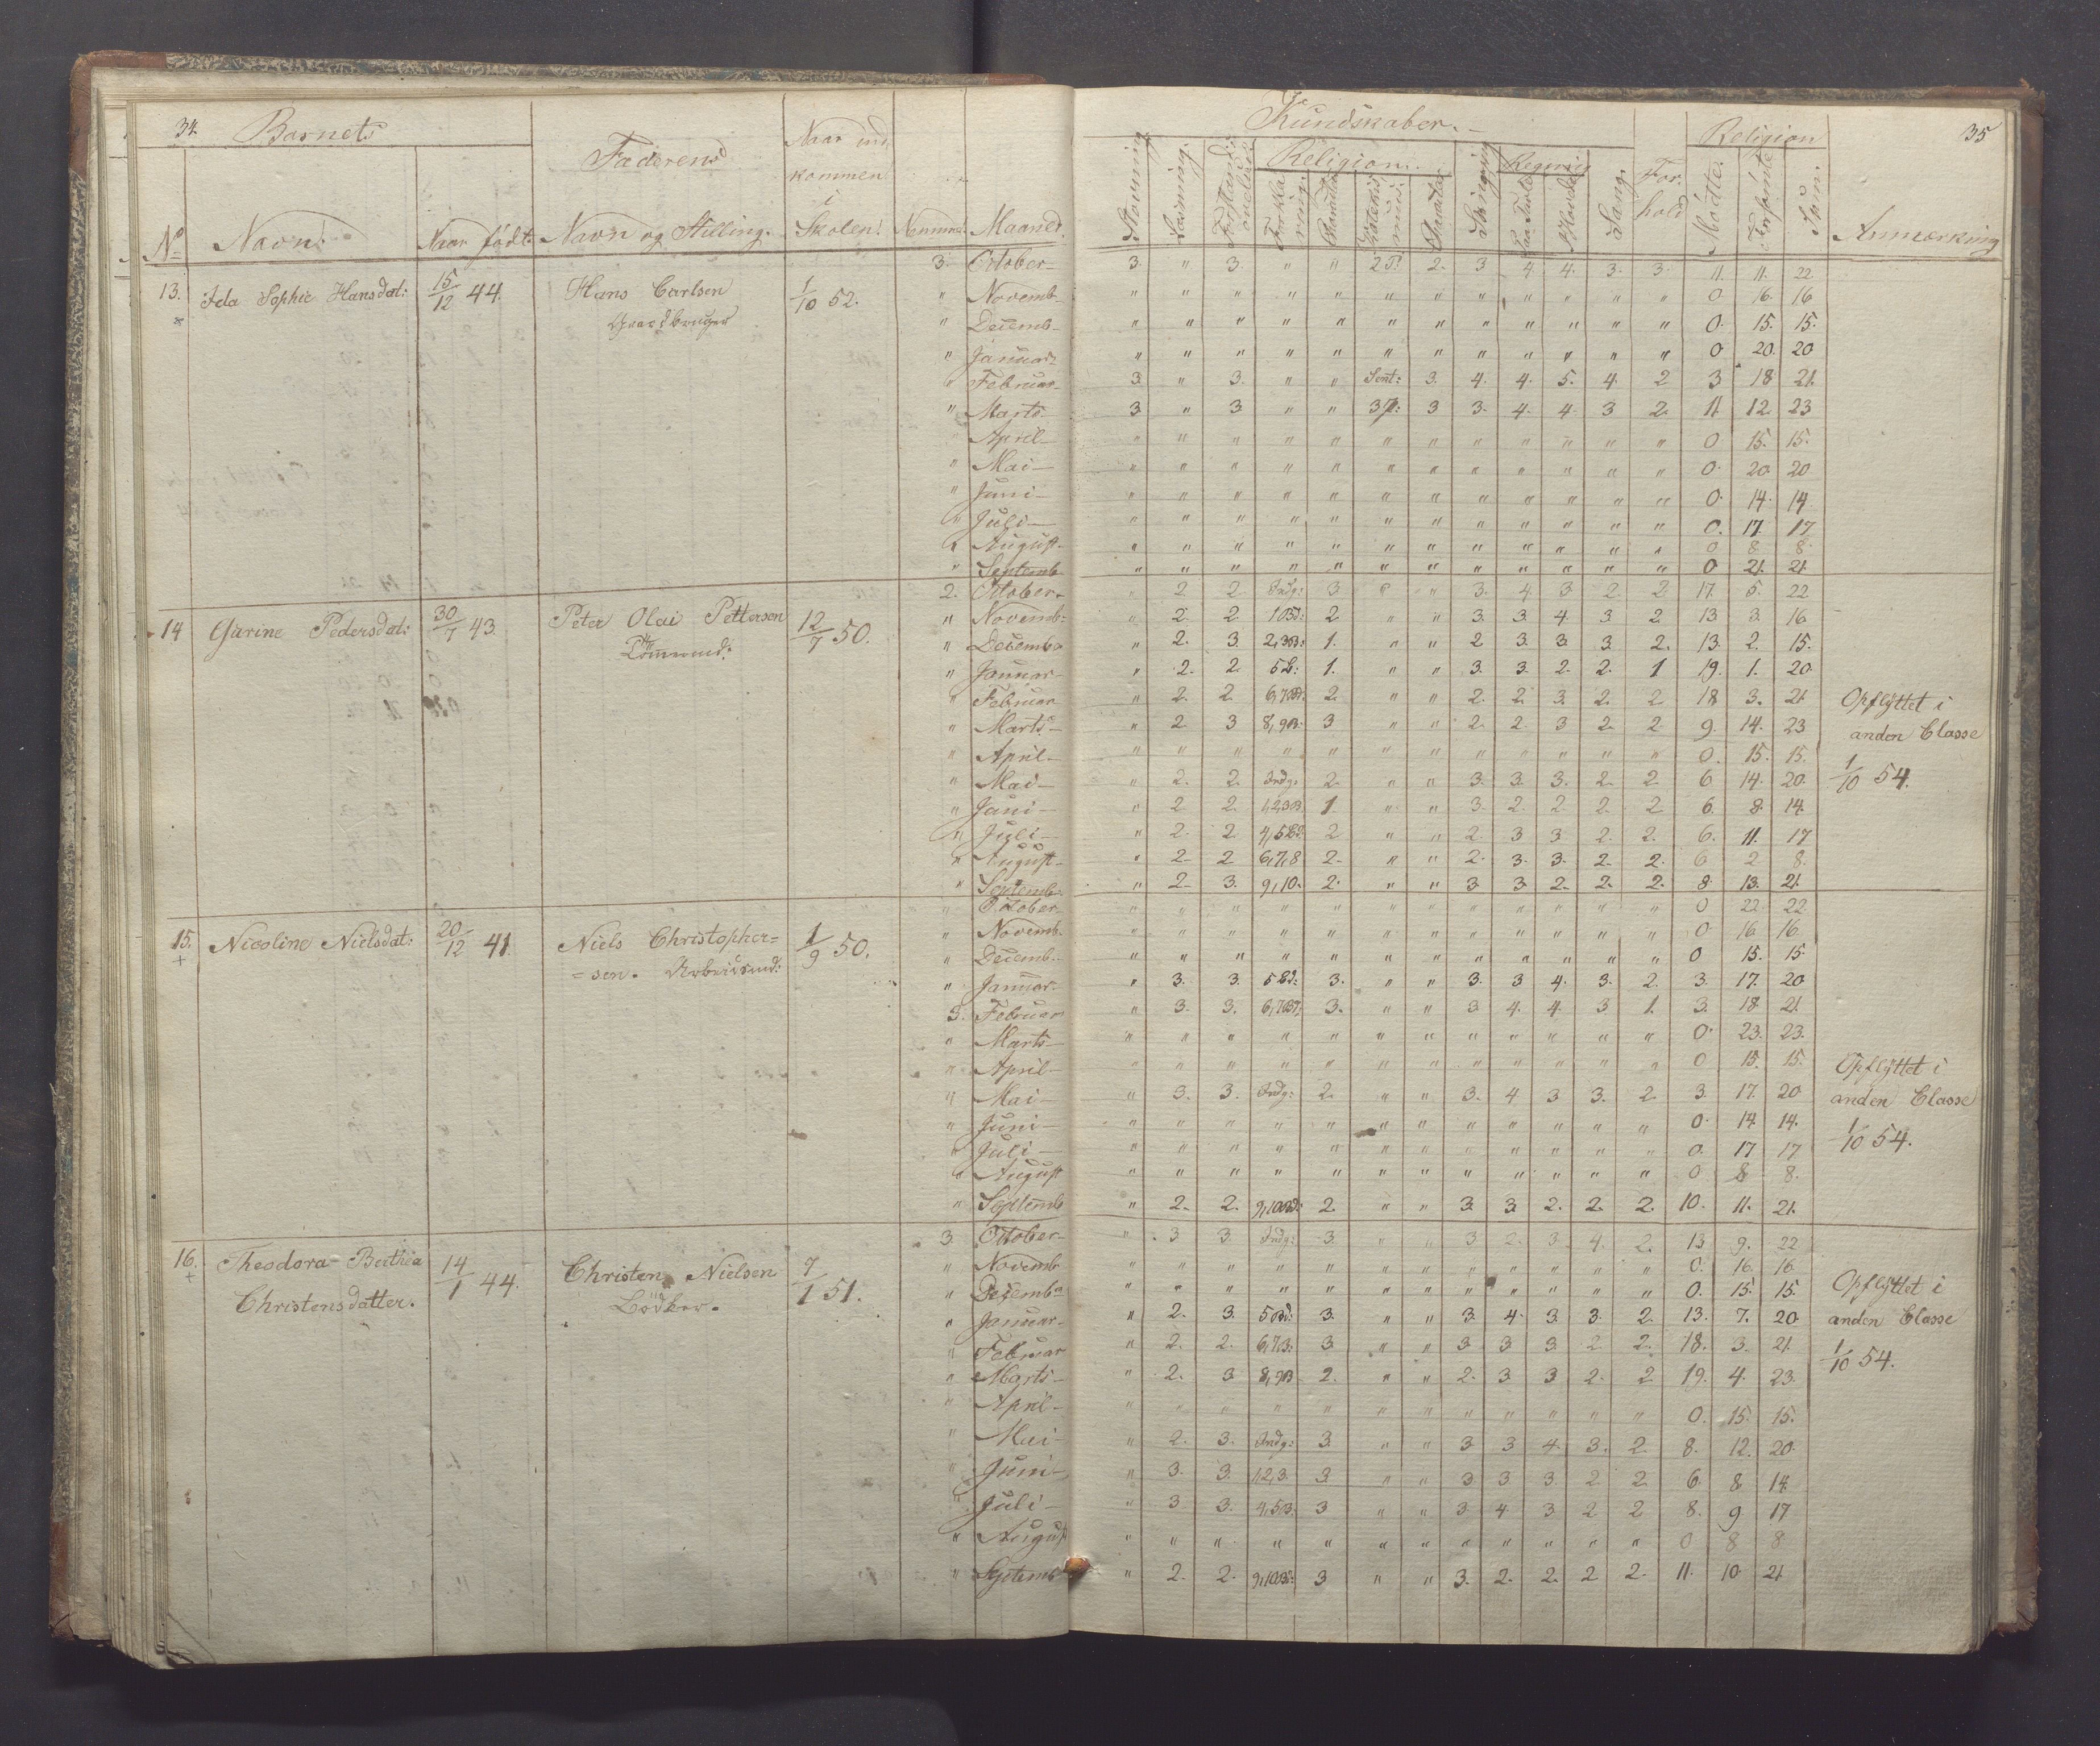 34.
Barnets
Faderens
Naar ind
kommen
i
Skolen!
No
Navn:
Naar født.
Navn og Stilling.
Maaned.
Kundskaber.
Religion
35
Stavning
Læsning.
Religion.
Regning
Sang.
For-
hold
Mødte:
Forsømte
Sum:
Anmærkning
13. Ida Sophie Hansdat: 15/12 44. Hans Carlsen 1/10 52.
Gaardbruger
3. October 3. " 3. " " 2 2. 3 4. 4. 3. 3. 11. 11. 22
" Novemb " " " " " " " " " " " " 0 16. 16
" Decemb " " " " " " " " " " " " 0. 15. 15.
" Januar " " " " " " " " " " " " 0 20. 20
" Februar 3. " 3. " " 3. 4. 4. 5. 4. 2 3 18 21.
" Marts 3. " 3 " " 3 3. 4. 4. 3 2. 11 12. 23
" April " " " " " " " " " " " " 0 15. 15.
" Mai " " " " " " " " " " " " 0. 20. 20
" Juni " " " " " " " " " " " " 0. 14. 14
" Juli " " " " " " " " " " " " 0. 17. 17
" August " " " " " " " " " " " " 0 8 8.
" Septemb " " " " " " " " " " " " 0 21. 21.
14 Garine Pedersdat: 30/7 43. Peter Olai Pettersen 12/7 50.
2. October " 2 2 Indg: 3 " " 3. 4. 3. 2 2. 17. 5. 22
" Novemb: " 2. 2. 2 " " 3. 3. 4. 3 2 13 3. 16.
" Decemb " 2. 3. 1. " " 2 3. 3. 3. 2. 13. 2. 15.
" Januar " 2. 2. 1. " " 3. 3. 2. 2. 1 19. 1. 20
" Februar " 2. 2. 2. " " 2. 2. 3. 2. 2 18 3. 21
" Marts " 2. 3 3 " " 2. 2 3 2. 2. 9. 14. 23
" April " " " " " " " " " " " " 0. 15. 15.
" Mai " 2. 2. Indg. 2. " " 3. 3. 3. 2. 2 6 14. 20.
" Juni " 2 2. 1 " " 3. 2. 2. 2. 2 6. 8. 14.
" Juli " 2. 2 2 " " 2. 3 3. 2. 2. 6. 11. 17
" August " 2. 2 6,7,8 2. " " 2. 3. 3. 2. 2. 6 2 8.
" Septemb " 2. 3. 9,10. 2. " " 3. 3. 2. 2. 2. 8. 13. 21.
Opflyttet i
anden Classe
1/10 54.
15. Nicoline Nielsdat: 20/12 41. Niels Christopher= 1/9 50.
= sen. Arbeidsmd:
" October " " " " " " " " " " " " 0 22 22
" Novemb. " " " " " " " " " " " " 0. 16. 16.
" Decemb. " " " " " " " " " " " " 0 15. 15.
" Januar " 3. 3. 3. " " 3. 3 4. 3. 2. 3. 17. 20
3. Februar " 3. 3. 3. " " 3 4. 4. 3 1. 3. 18. 21.
" Marts " " " " " " " " " " " " 0. 23. 23.
" April " " " " " " " " " " " " 0 15. 15.
" Mai " 3. 3. Indg: 2. " " 3. 4 3 3. 2 3. 17. 20
" Juni " " " " " " " " " " " " 0. 14 14.
" Juli " " " " " " " " " " " " 0. 17 17
" August " " " " " " " " " " " " 0. 8 8.
" Septemb " 2. 2. 2. " " 3. 3. 2. 2. 2. 10. 11. 21.
Opflyttet i
anden Classe
1/10 54.
16. Theodora Berthea 14/1 44. Christen Nielsen 7/1 51.
Christensdatter. Bödker.
3 October " 3 3. Indg: 3. " " 3 2. 3. 4. 2. 13 9. 22
" Novemb " " " " " " " " " " " " 0. 16. 16
" Decemb " " " " " " " " " " " " 0. 15. 15.
" Januar " 2. 3. 3. " " 3 4. 3. 3. 2. 13. 7. 20
" Februar " 2. 2. 3 " " 3 3. 3. 2 2. 18. 3. 21.
" Marts " 2. 3 2. " " 2. 3. 3 2. 2 19. 4. 23.
" April " " " " " " " " " " " " 0. 15. 15.
" Mai " 2. 3. Indg: 3 " " 3 3 4. 3. 2. 8. 12. 20.
" Juni " 3. 3. 1,2,3. 3 " " 3 3 3 2 2 6. 8. 14
" Juli " 3 3. 3 " " 3. 4. 3 2 2 8. 9 17
" August " " " " " " " " " " " " 0 8 8
" Septemb " 2. 2. 3 " " 3. 2. 2. 2 2. 11. 10. 21
Opflyttet i
anden Classe
1/10 54.